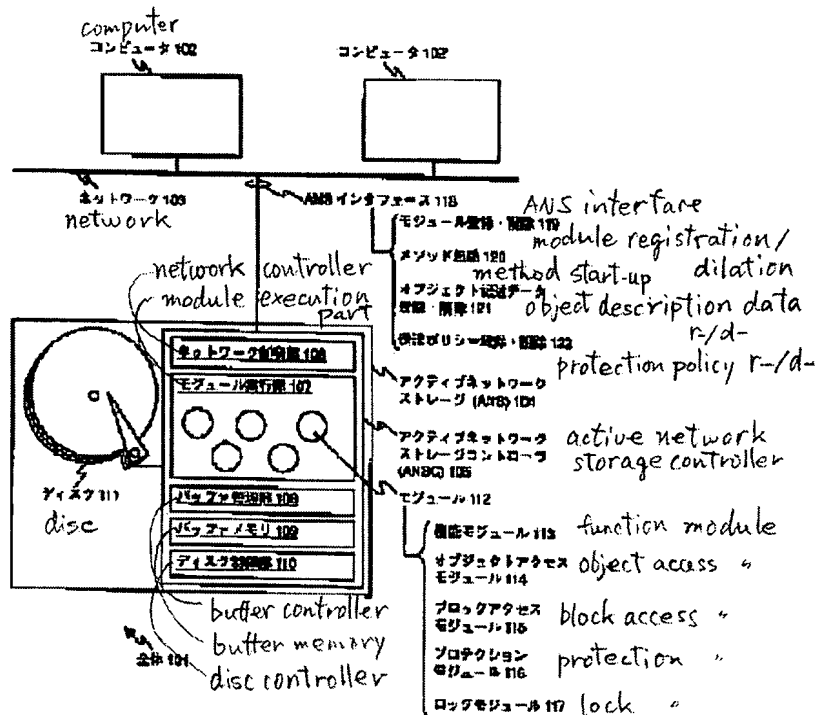 computer
コンピュータ 102
コンピュータ 102'
ネットワーク 103
network
ANSインタフェース 118
ANS interface
モジュール登録・削除 119
module registration/
dilation
メソッド起動 120
method start-up
オブジェクト記述データ
登録・削除 121
object description data
r-/d-
保護ポリシー登録・削除 122
protection policy r-/d-
network controller
module execution
part
ネットワーク制御部 106
モジュール実行部 107
アクティブネットワーク
ストレージ (ANS) 104
アクティブネットワーク
ストレージコントローラ
(ANSC) 105
active network
storage controller
ディスク 111
disc
バッファ管理部 108
バッファメモリ 109
ディスク制御部 110
モジュール 112
機能モジュール 113
function module
オブジェクトアクセス
モジュール 114
object access "
ブロックアクセス
モジュール 115
block access "
プロテクション
モジュール 116
protection "
ロックモジュール 117
lock "
buffer controller
buffer memory
disc controller
全体 101